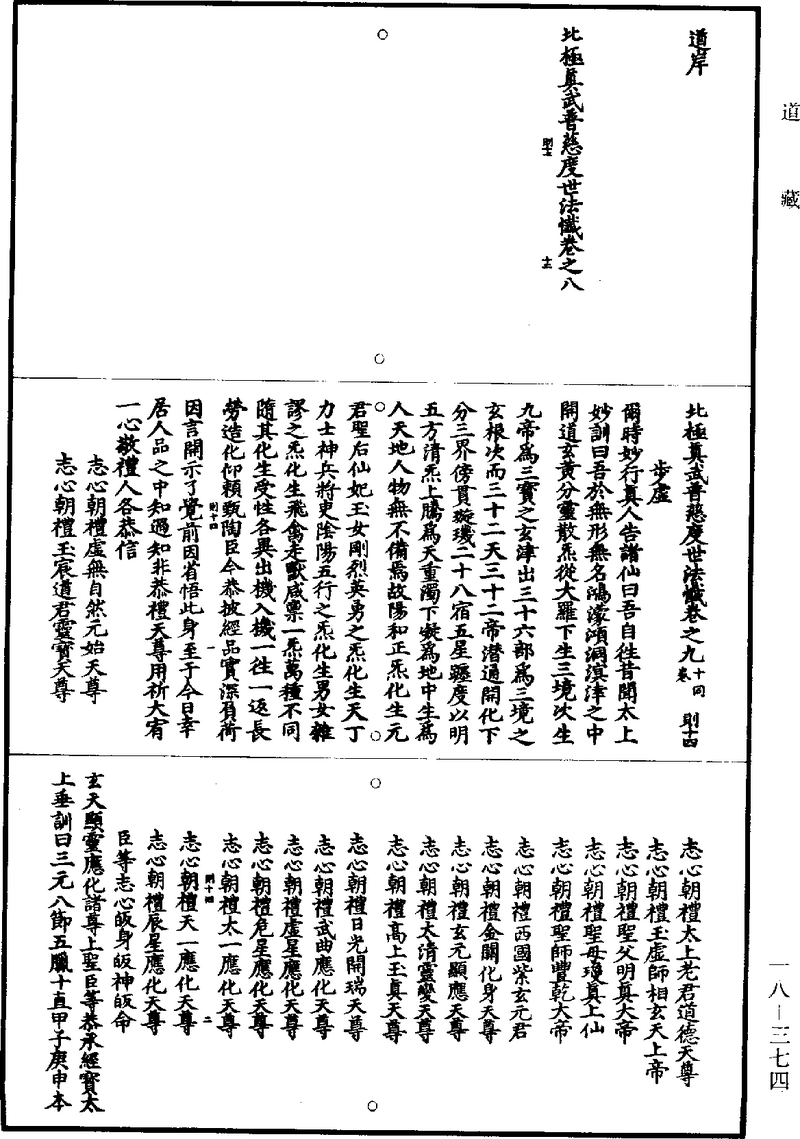 道藏
道岸
北極真武普慈度世法懺卷之八
則十三
十三
北極真武普慈度世法懺卷之九 十同卷 則十四
步虛
爾時妙行真人告諸仙曰吾自往昔聞太上
妙訓曰吾於無形無名鴻濛澒洞溟涬之中
開道玄黃分靈散炁從大羅下生三境次生
九帝為三寶之玄津出三十六部為三境之
玄根次而三十二天三十二帝潛通開化下
分三界傍貫璇璣二十八宿五星躔度以明
五方清炁上騰為天重濁下凝為地中生為
人天地人物無不備焉故陽和正炁化生元
君聖后仙妃玉女剛烈英勇之炁化生天丁
力士神兵將吏陰陽五行之炁化生男女雜
謬之炁化生飛禽走獸咸稟一炁萬種不同
隨其化生受性各異出機入機一往一返長
勞造化仰賴甄陶臣今恭披經品實深負荷
則十四
一
因言開示了覺前因省悟此身至于今日幸
居人品之中知過知非恭禮天尊用祈大宥
一心敬禮人各恭信
志心朝禮虛無自然元始天尊
志心朝禮玉宸道君靈寶天尊
志心朝禮太上老君道德天尊
志心朝禮玉虛師相玄天上帝
志心朝禮聖父明真大帝
志心朝禮聖母瓊真上仙
志心朝禮聖師豐乾大帝
志心朝禮西國紫玄元君
志心朝禮金闕化身天尊
志心朝禮玄元顯應天尊
志心朝禮太清靈變天尊
志心朝禮高上玉真天尊
志心朝禮日光開瑞天尊
志心朝禮武曲應化天尊
志心朝禮虛星應化天尊
志心朝禮危星應化天尊
志心朝禮太一應化天尊
則十四
二
志心朝禮天一應化天尊
志心朝禮辰星應化天尊
臣等志心皈身皈神皈命
玄天顯靈應化諸尊上聖臣等恭承經寶太
上垂訓曰三元八節五臘十直甲子庚申本
一八—三七四